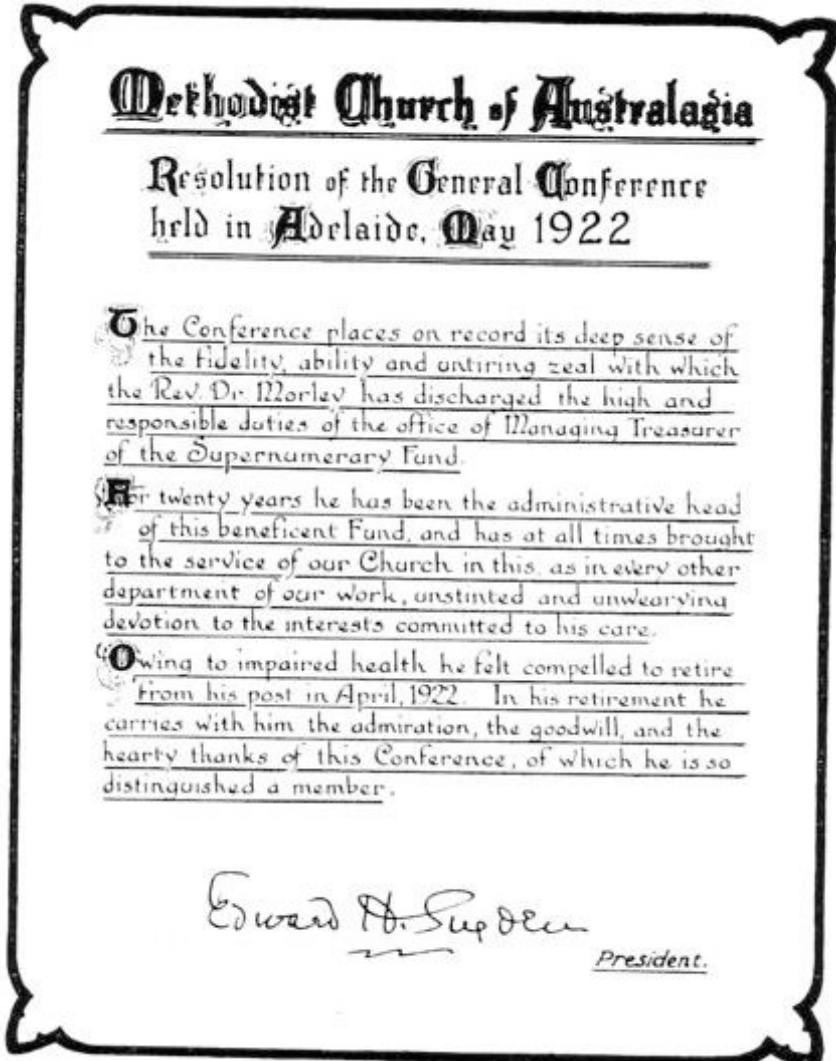 Methodist Church of Australasia
Resolution of the General Conference
held in Adelaide, May 1922
The Conference places on record its deep sense of
the fidelity, ability and untiring zeal with which
the Rev. Dr. Morley has discharged the high and
responsible duties of the office of Managing Treasurer
of the Supernumerary Fund.
For twenty years he has been the administrative head
of this beneficent Fund, and has at all times brought
to the service of our Church in this, as in every other
department of our work, unstinted and unwearying
devotion to the interests committed to his care.
Owing to impaired health he felt compelled to retire
from his post in April, 1922. In his retirement he
carries with him the admiration, the goodwill, and the
hearty thanks of this Conference, of which he is so
distinguished a member.
Edward H. Sugden
President.